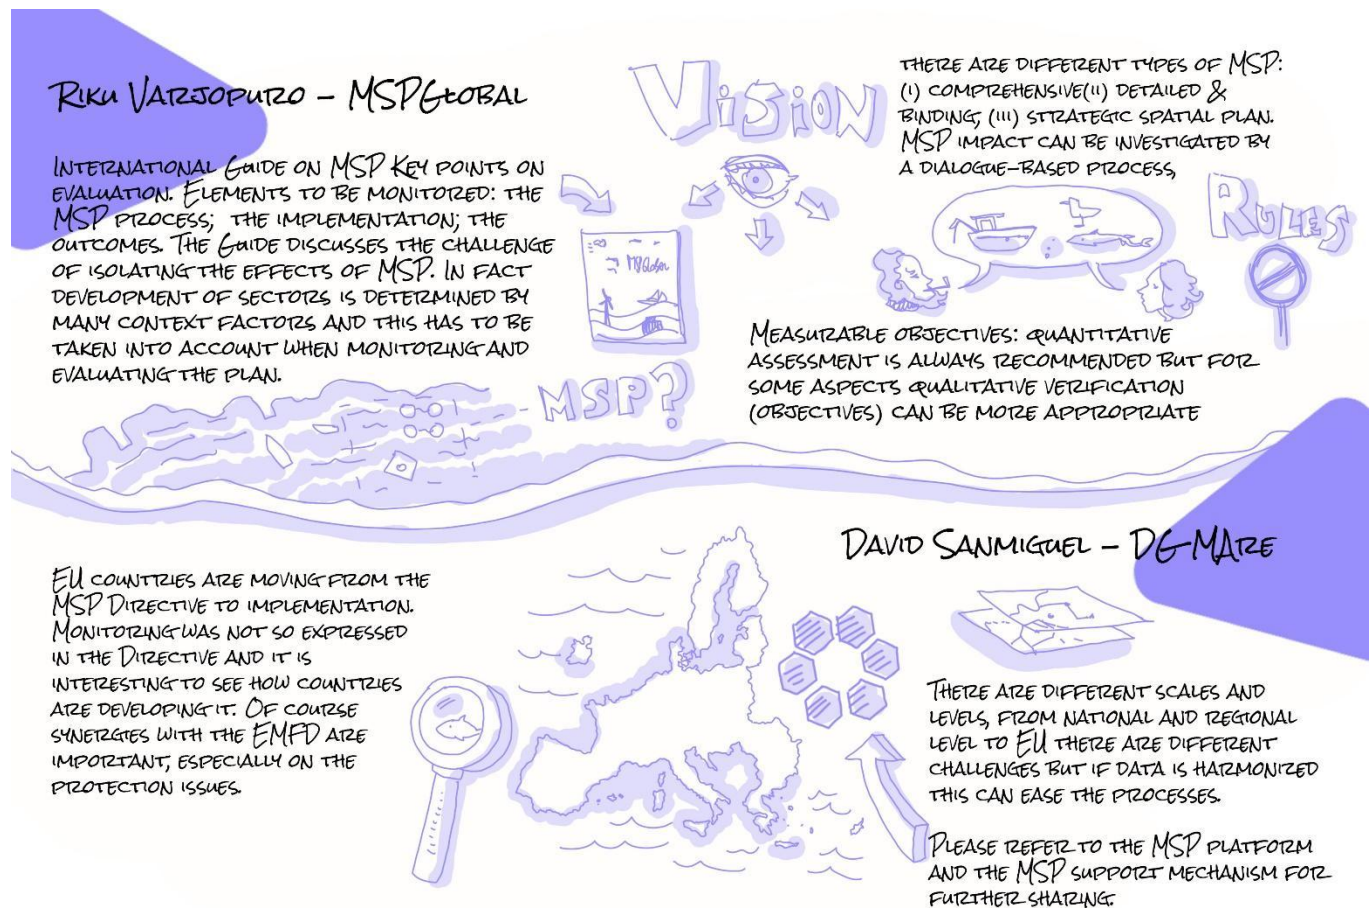 Riku Varjopuro – MSPGlobal
International Guide on MSP Key points on
evaluation. Elements to be monitored: the
MSP process; the implementation; the
outcomes. The Guide discusses the challenge
of isolating the effects of MSP. In fact
development of sectors is determined by
many context factors and this has to be
taken into account when monitoring and
evaluating the plan.
Vision
MSPGlobal
MSP?
There are different types of MSP:
(i) comprehensive(ii) detailed &
binding, (iii) strategic spatial plan.
MSP impact can be investigated by
a dialogue-based process,
Rules
Measurable objectives: quantitative
assessment is always recommended but for
some aspects qualitative verification
(objectives) can be more appropriate
EU countries are moving from the
MSP Directive to implementation.
Monitoring was not so expressed
in the Directive and it is
interesting to see how countries
are developing it. Of course
synergies with the EMFD are
important, especially on the
protection issues.
David Sanmiguel – DG-MAre
There are different scales and
levels, from national and regional
level to EU there are different
challenges but if data is harmonized
this can ease the processes.
Please refer to the MSP platform
and the MSP support mechanism for
further sharing.